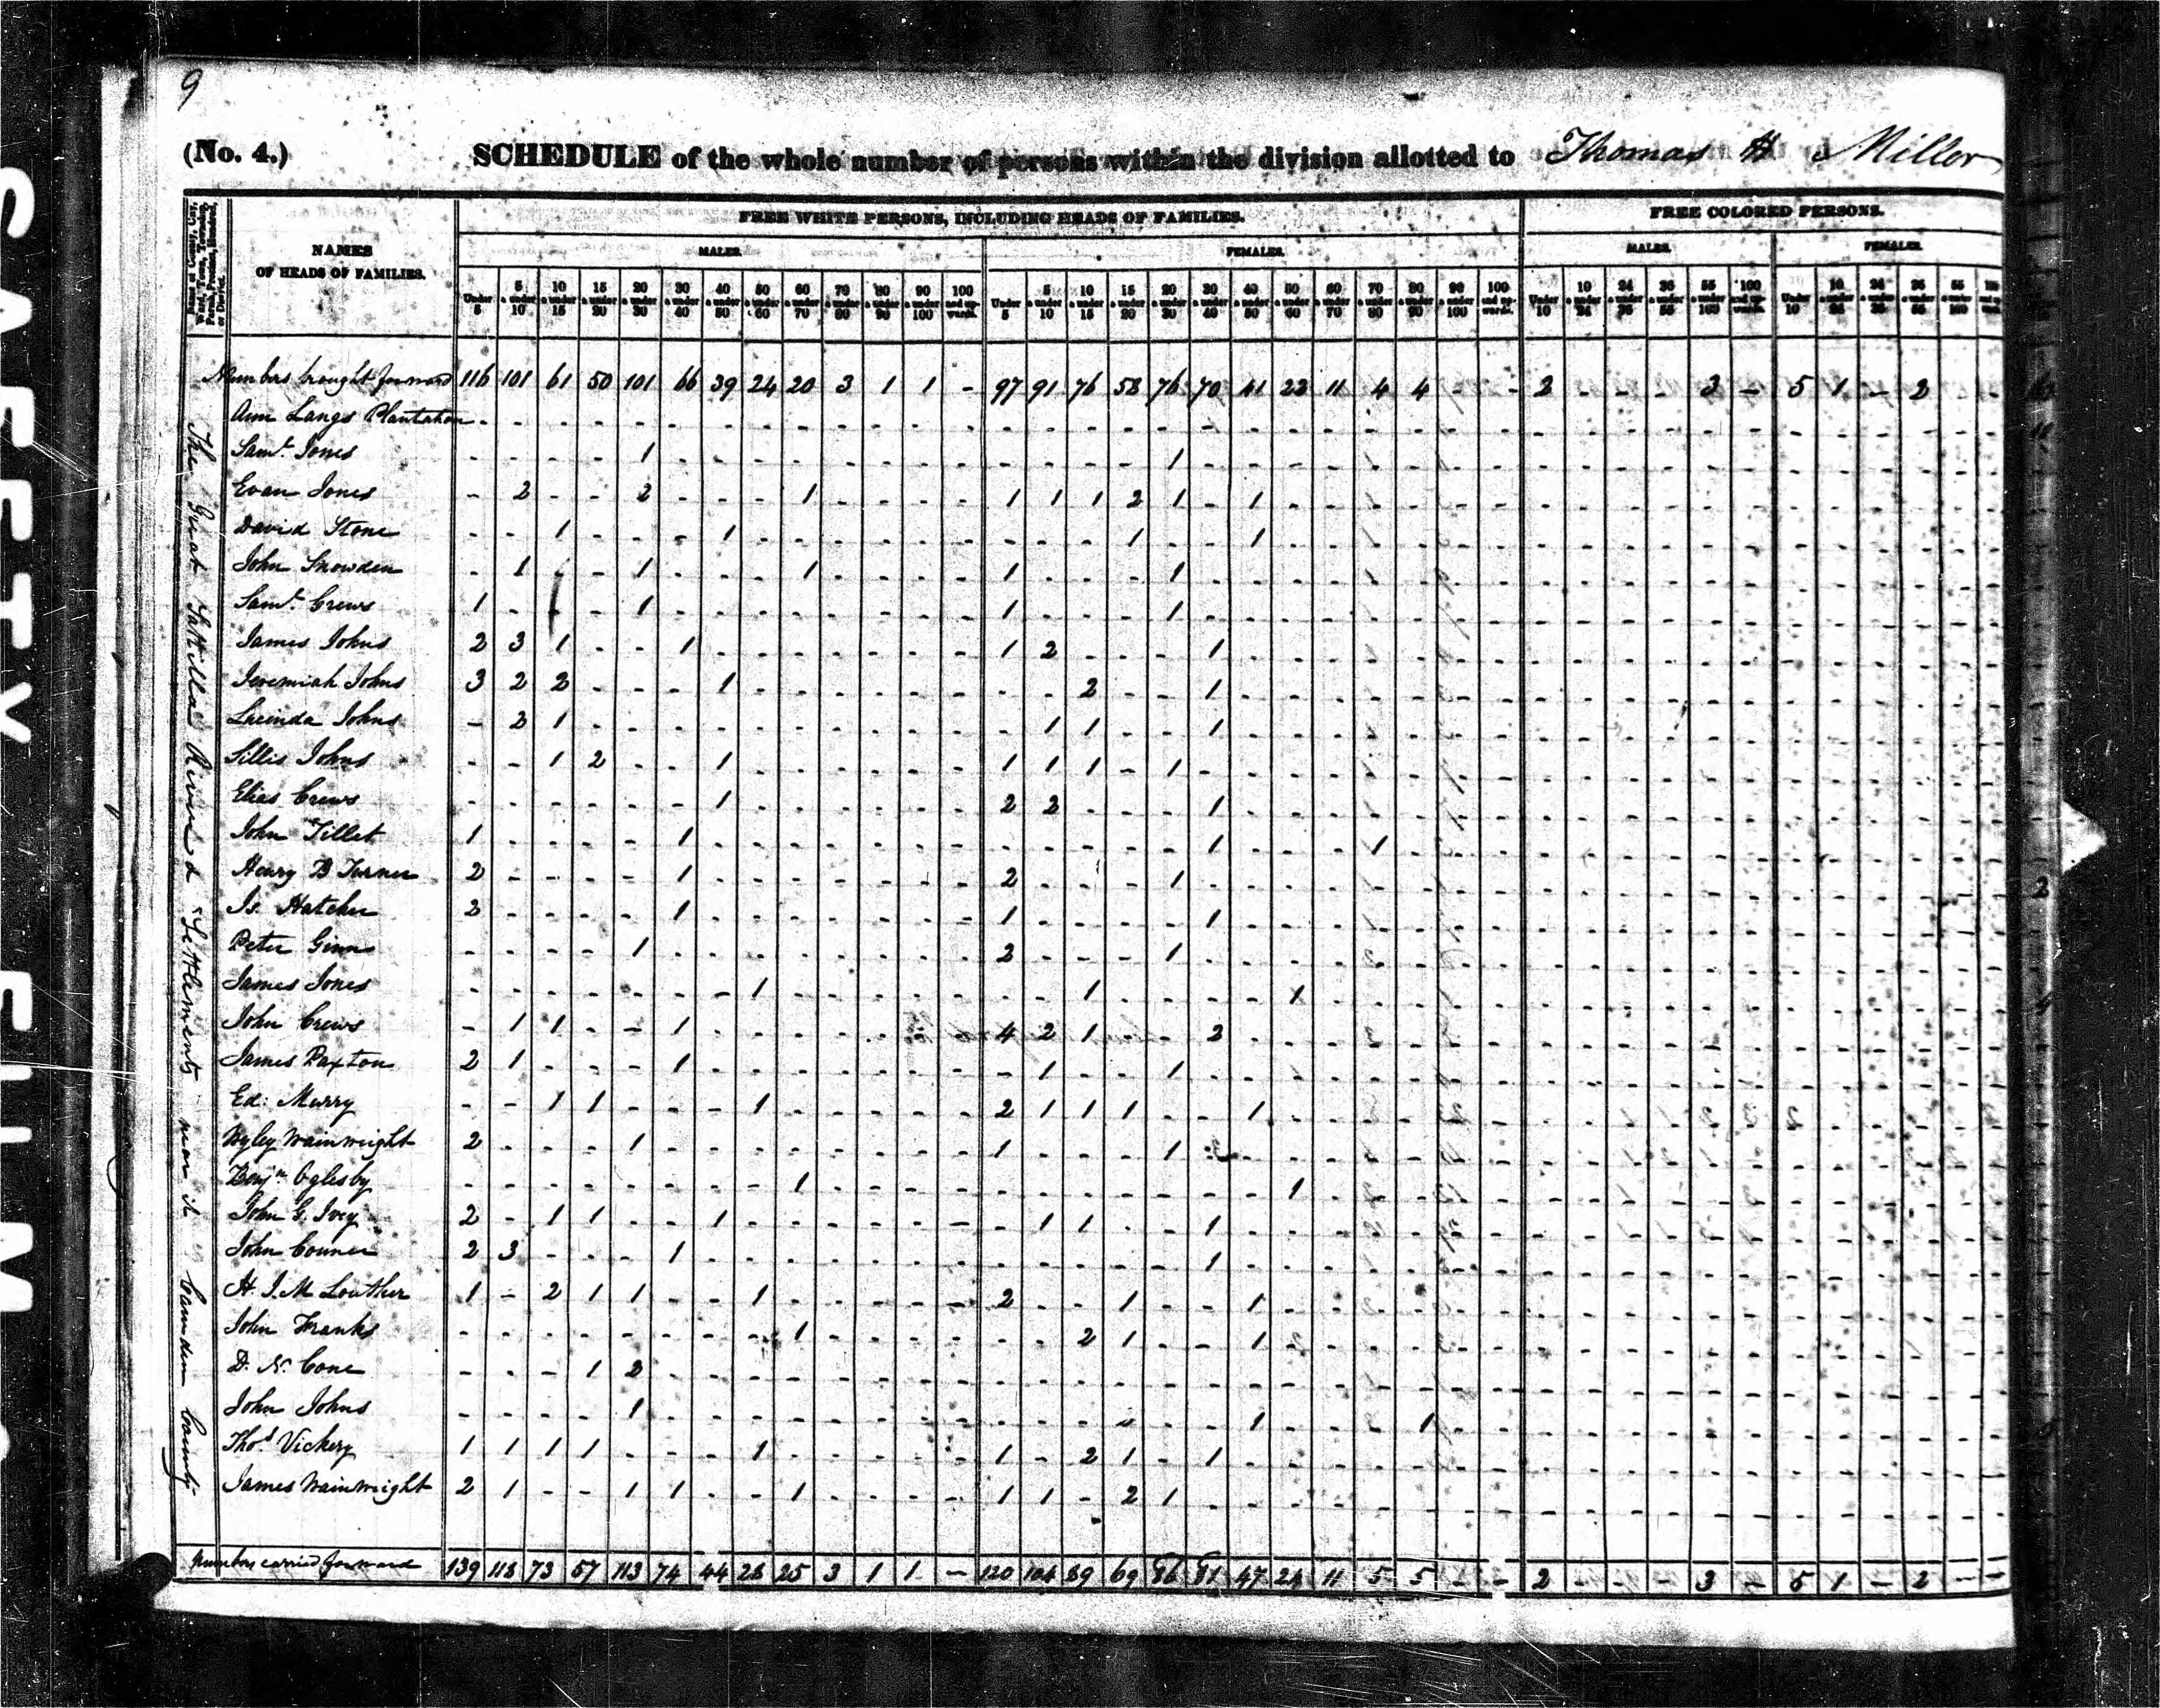 9
(No. 4.) SCHEDULE of the whole number of persons within the division allotted to Thomas H Miller
FREE WHITE PERSONS, INCLUDING HEADS OF FAMILIES. FREE COLORED PERSONS.
NAMES OF HEADS OF FAMILIES. MALES. FEMALES. MALES. FEMALES.
Under 5 | 5 & under 10 | 10 & under 15 | 15 & under 20 | 20 & under 30 | 30 & under 40 | 40 & under 50 | 50 & under 60 | 60 & under 70 | 70 & under 80 | 80 & under 90 | 90 & under 100 | 100 and upwards. | Under 5 | 5 & under 10 | 10 & under 15 | 15 & under 20 | 20 & under 30 | 30 & under 40 | 40 & under 50 | 50 & under 60 | 60 & under 70 | 70 & under 80 | 80 & under 90 | 90 & under 100 | 100 and upwards. | Under 10 | 10 & under 24 | 24 & under 36 | 36 & under 55 | 55 & under 100 | 100 and upwards. | Under 10 | 10 & under 24 | 24 & under 36 | 36 & under 55 | 55 & under 100
The Great Sattilla River & Settlements near it Camden County
Numbers brought forward 116 101 61 50 101 66 39 24 20 3 1 1 - 97 91 76 58 76 70 41 22 11 4 4 - - 2 - - - 3 - 5 1 - 2 - -
Ann Langs Plantation
Saml. Jones 1 1
Evan Jones 2 2 1 1 1 1 2 1 1
David Stone 1 1 1 1
John Snowden 1 1 1 1 1
Saml. Crews 1 1 1 1
James Johns 2 3 1 1 1 2 1
Jeremiah Johns 3 2 2 1 2 1
Lucinda Johns 2 1 1 1 1
Sillis Johns 1 2 1 1 1 1 1
Elias Crews 1 2 2 1
John Tillet 1 1 1 1
Henry B Turner 2 1 2 1
Is. Hatcher 2 1 1 1
Peter Ginn 1 2 1
James Jones 1 1 1
John Crews 1 1 1 4 2 1 2
James Paxton 2 1 1 1 1
Ed: Merry 1 1 1 2 1 1 1 1
Wyley Wainwright 2 1 1 1
Benjn. Oglesby 1 1
John G. Ivey 2 1 1 1 1 1 1
John Conner 2 3 1 1
H. J. M Louther 1 2 1 1 1 2 1 1
John Franks 1 2 1 1
D. N. Cone 1 2
John Johns 1 1 1
Thos. Vickery 1 1 1 1 1 1 2 1 1
James Wainwright 2 1 1 1 1 1 1 2 1
Numbers carried forward 139 118 73 57 113 74 44 28 25 3 1 1 - 120 104 89 69 86 81 47 24 11 5 5 - - 2 - - - 3 - 5 1 - 2 - -